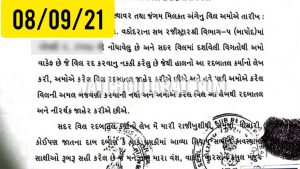 08/09/21
સ્થાવર તથા જંગમ મિલકત અંગેનું વિલ અમોએ તારીખ :
વડોદરાના સબ રજીસ્ટ્રાર શ્રી વિભાગ-૫ (બાપોદ)માં
નોંધાવેલ છે અને સદર વિલમાં દર્શાવેલી વિગતોથી અમો
વાકેફ છે જે વિલ રદ કરવાનું નક્કી કરેલું છે જેથી આ રદબાતલ કર્યાનો લેખ
કરી, અમોએ કરેલ વિલ રદબાતલ જાહેર કરીએ છીએ અને હવે પછી અમોએ કરેલ
વિલની અમલ બજવણી કરવાની નથી અને અમોએ કરેલ વિલ આ લેખથી રદબાતલ
અને નીરર્થક જાહેર કરીએ છીએ.
સદર વિલ રદબાતલ કર્યાનો લેખ મેં મારી રાજીખુશીથી
કોઈપણ જાતના દાબ દબાણ
સાક્ષીઓ રૂબરૂ સહી કરેલ છે જે મારા વંશ, વાલી, વારસોને